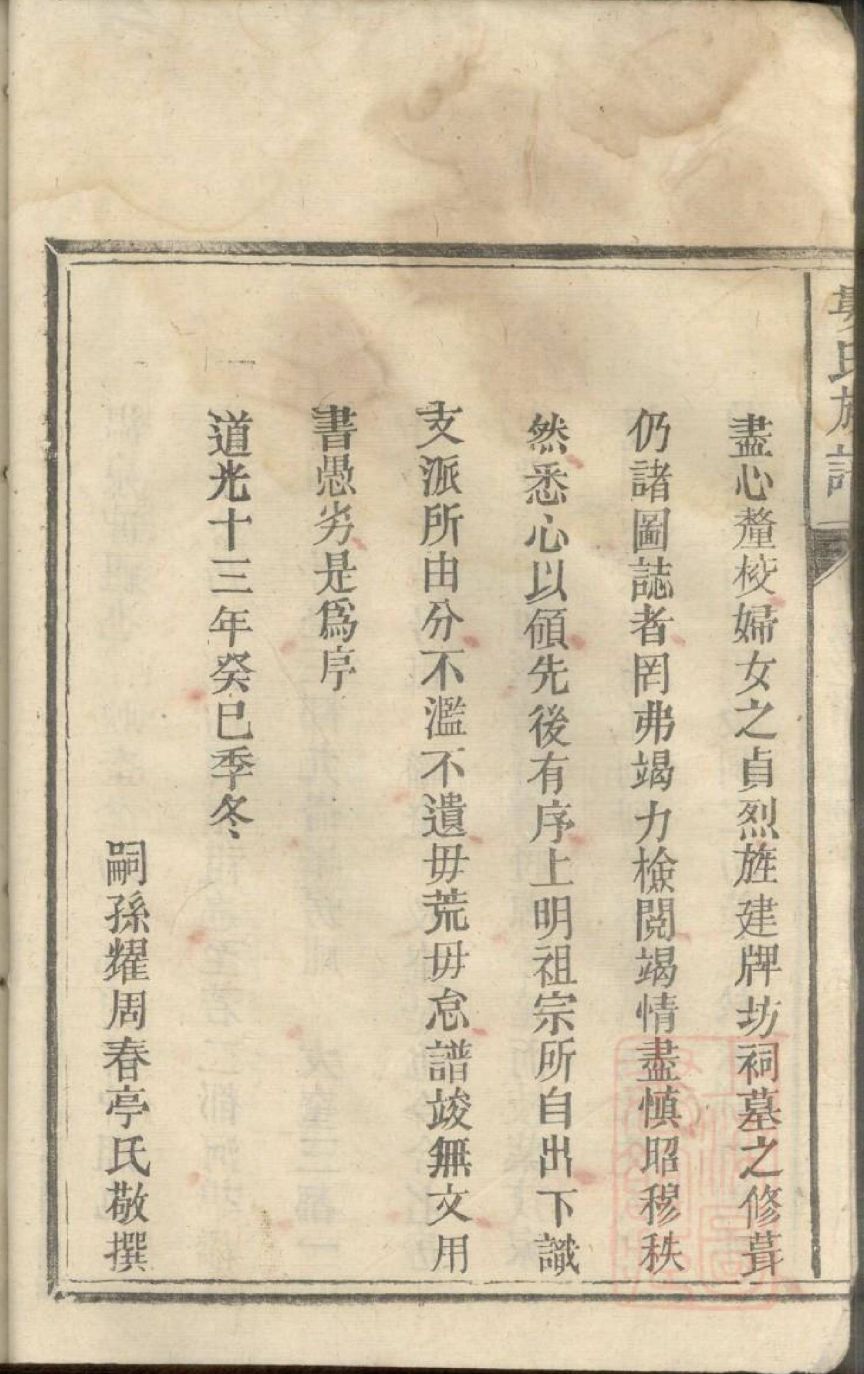 氏族譜
盡心釐校婦女之貞烈旌建牌坊祠墓之修葺
仍諸圖誌者罔弗竭力檢閱竭情盡慎昭穆秩
然悉心以頒先後有序上明祖宗所自出下識
支派所由分不濫不遺毋荒毋怠譜竣無文用
書愚劣是爲序
道光十三年癸巳季冬
嗣孫耀周春亭氏敬撰